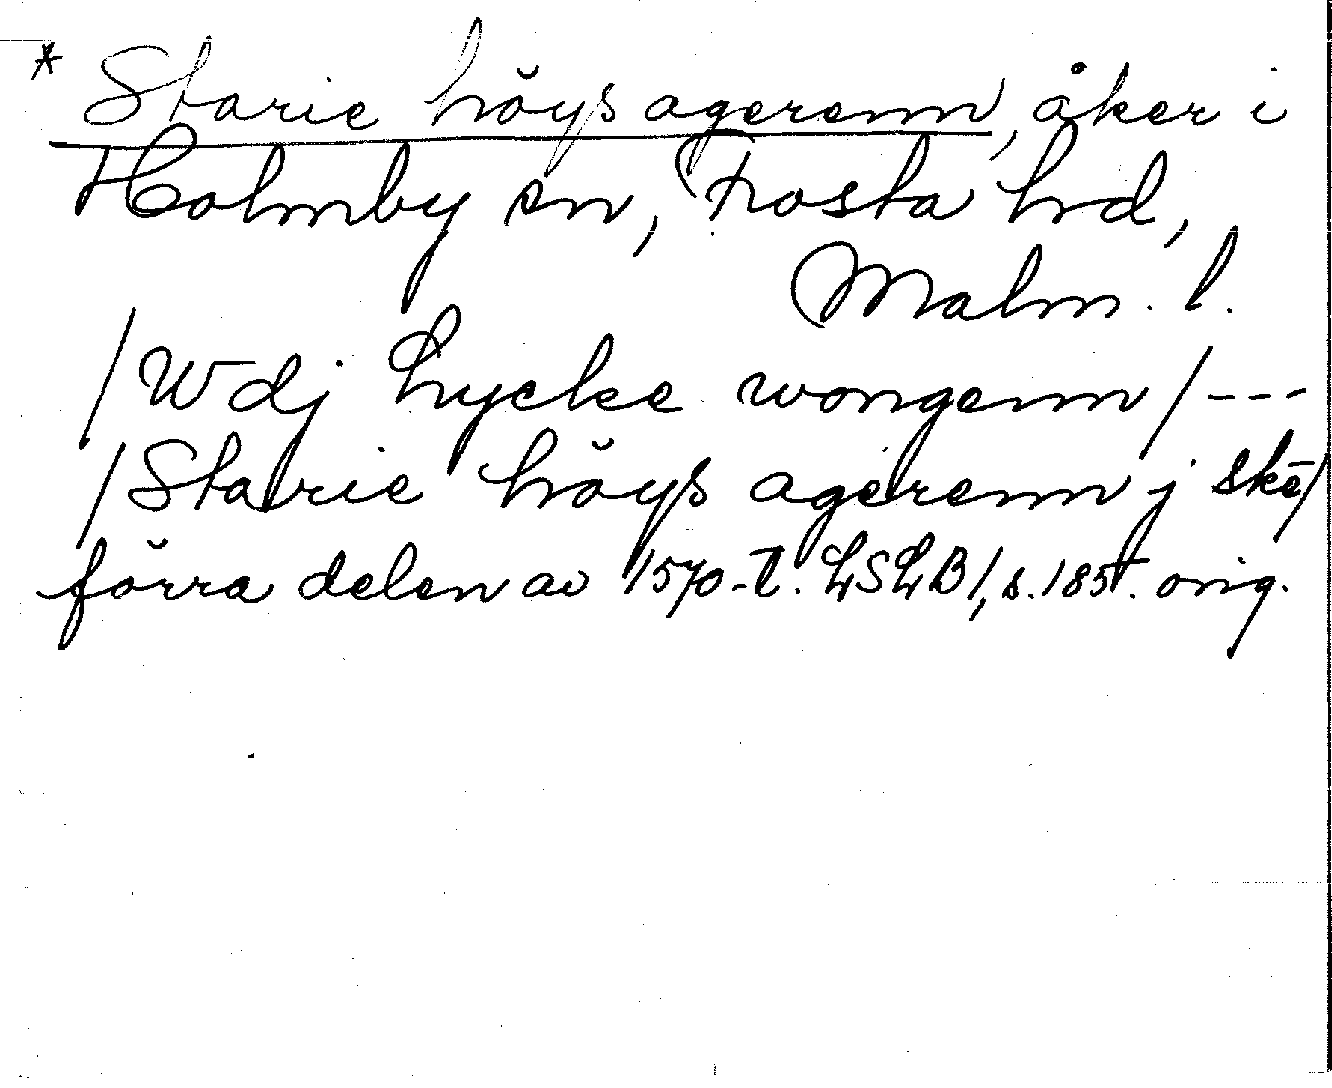 * Starie höys agerenn, åker i
Holmby sn, Frosta hrd,
Malm. l.
/W dj Lycke wongenn/---
/Starie höys agerenn j skē/
förra delen av 1570-t. LSLB/, s. 185. orig.